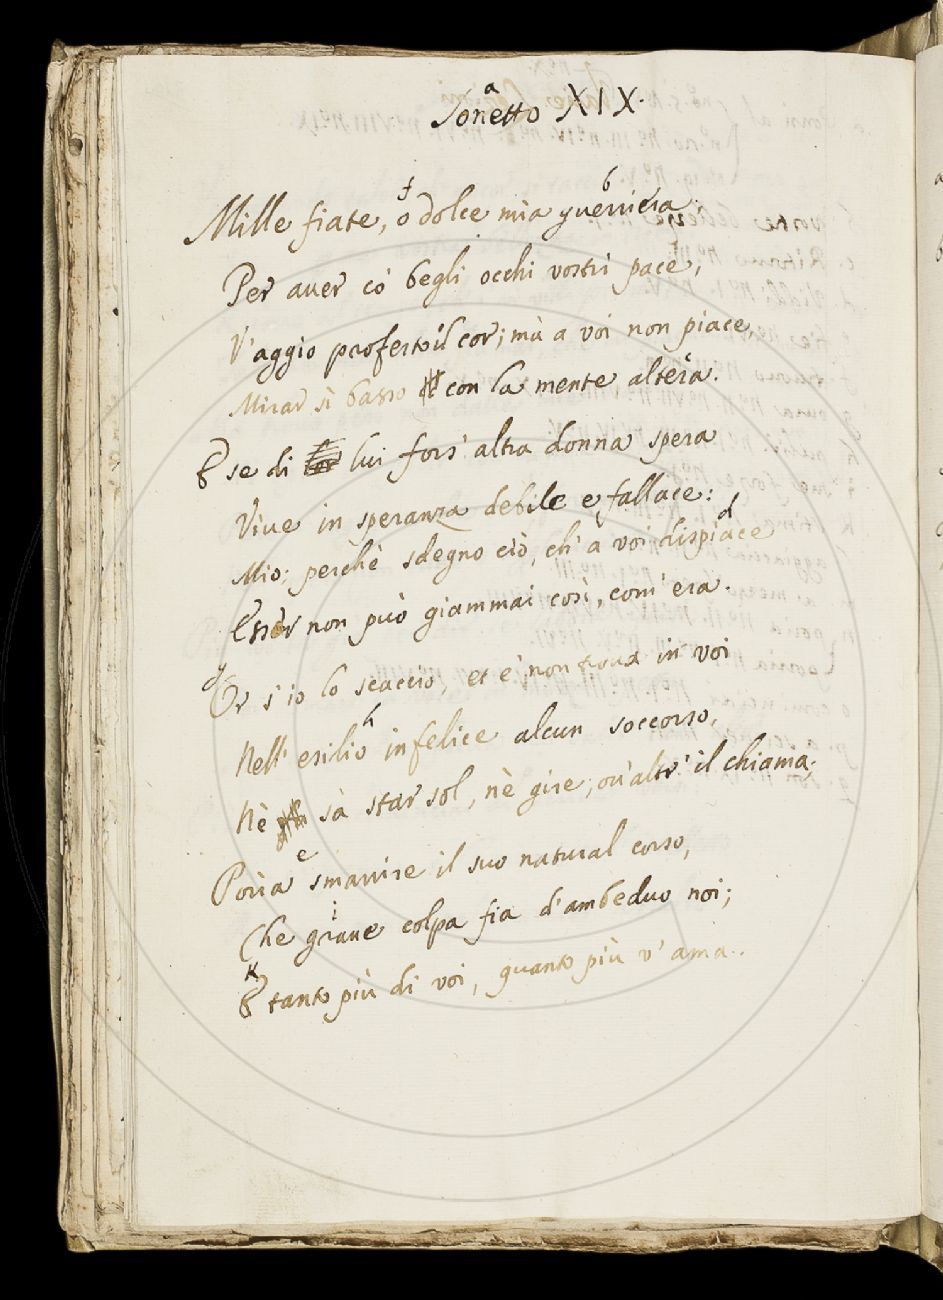 Sonetto XIX.
Mille fiate, o dolce mia guerriera
Per aver cò begli occhi vostri pace,
V'aggio proferto il cor; mà a voi non piace,
Mirar sì basso con la mente altera.
E se di lui fors' altra donna spera
Vive in speranza debile e fallace:
Mio; perchè sdegno ciò, ch' a voi dispiace
Esser non può giammai così, com' era.
Or s' io lo scaccio, et e' non trova in voi
Nell' esilio infelice alcun soccorso,
Nè sà star sol, nè gire, ov' altr' il chiama;
Poria smarrire il suo natural corso,
Che grave colpa fia d'ambeduo noi;
E tanto più di voi, quanto più v' ama.